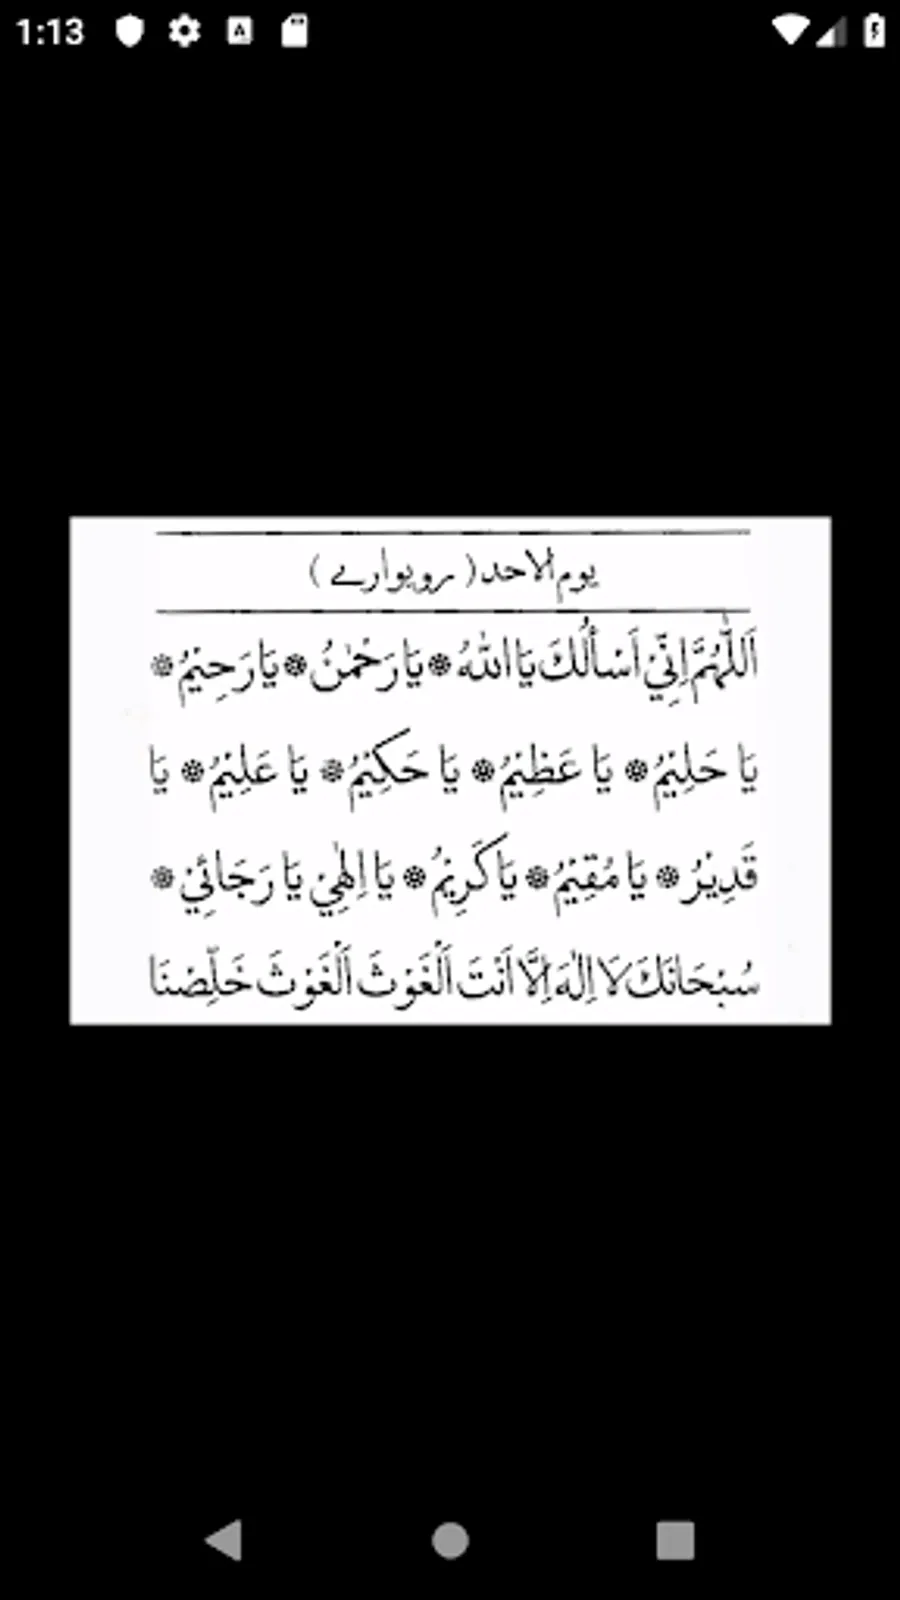 1:13
يوم الاحد (رويوارے)
اَللّٰهُمَّ اِنِّيْ اَسْأَلُكَ يَا اَللّٰهُ ❁ يَا رَحْمٰنُ ❁ يَا رَحِيْمُ ❁
يَا حَلِيْمُ ❁ يَا عَظِيْمُ ❁ يَا حَكِيْمُ ❁ يَا عَلِيْمُ ❁ يَا
قَدِيْرُ ❁ يَا مُقِيْمُ ❁ يَا كَرِيْمُ ❁ يَا اِلٰهِيْ يَا رَجَائِيْ ❁
سُبْحَانَكَ لَا اِلٰهَ اِلَّا اَنْتَ اَلْغَوْثَ اَلْغَوْثَ خَلِّصْنَا